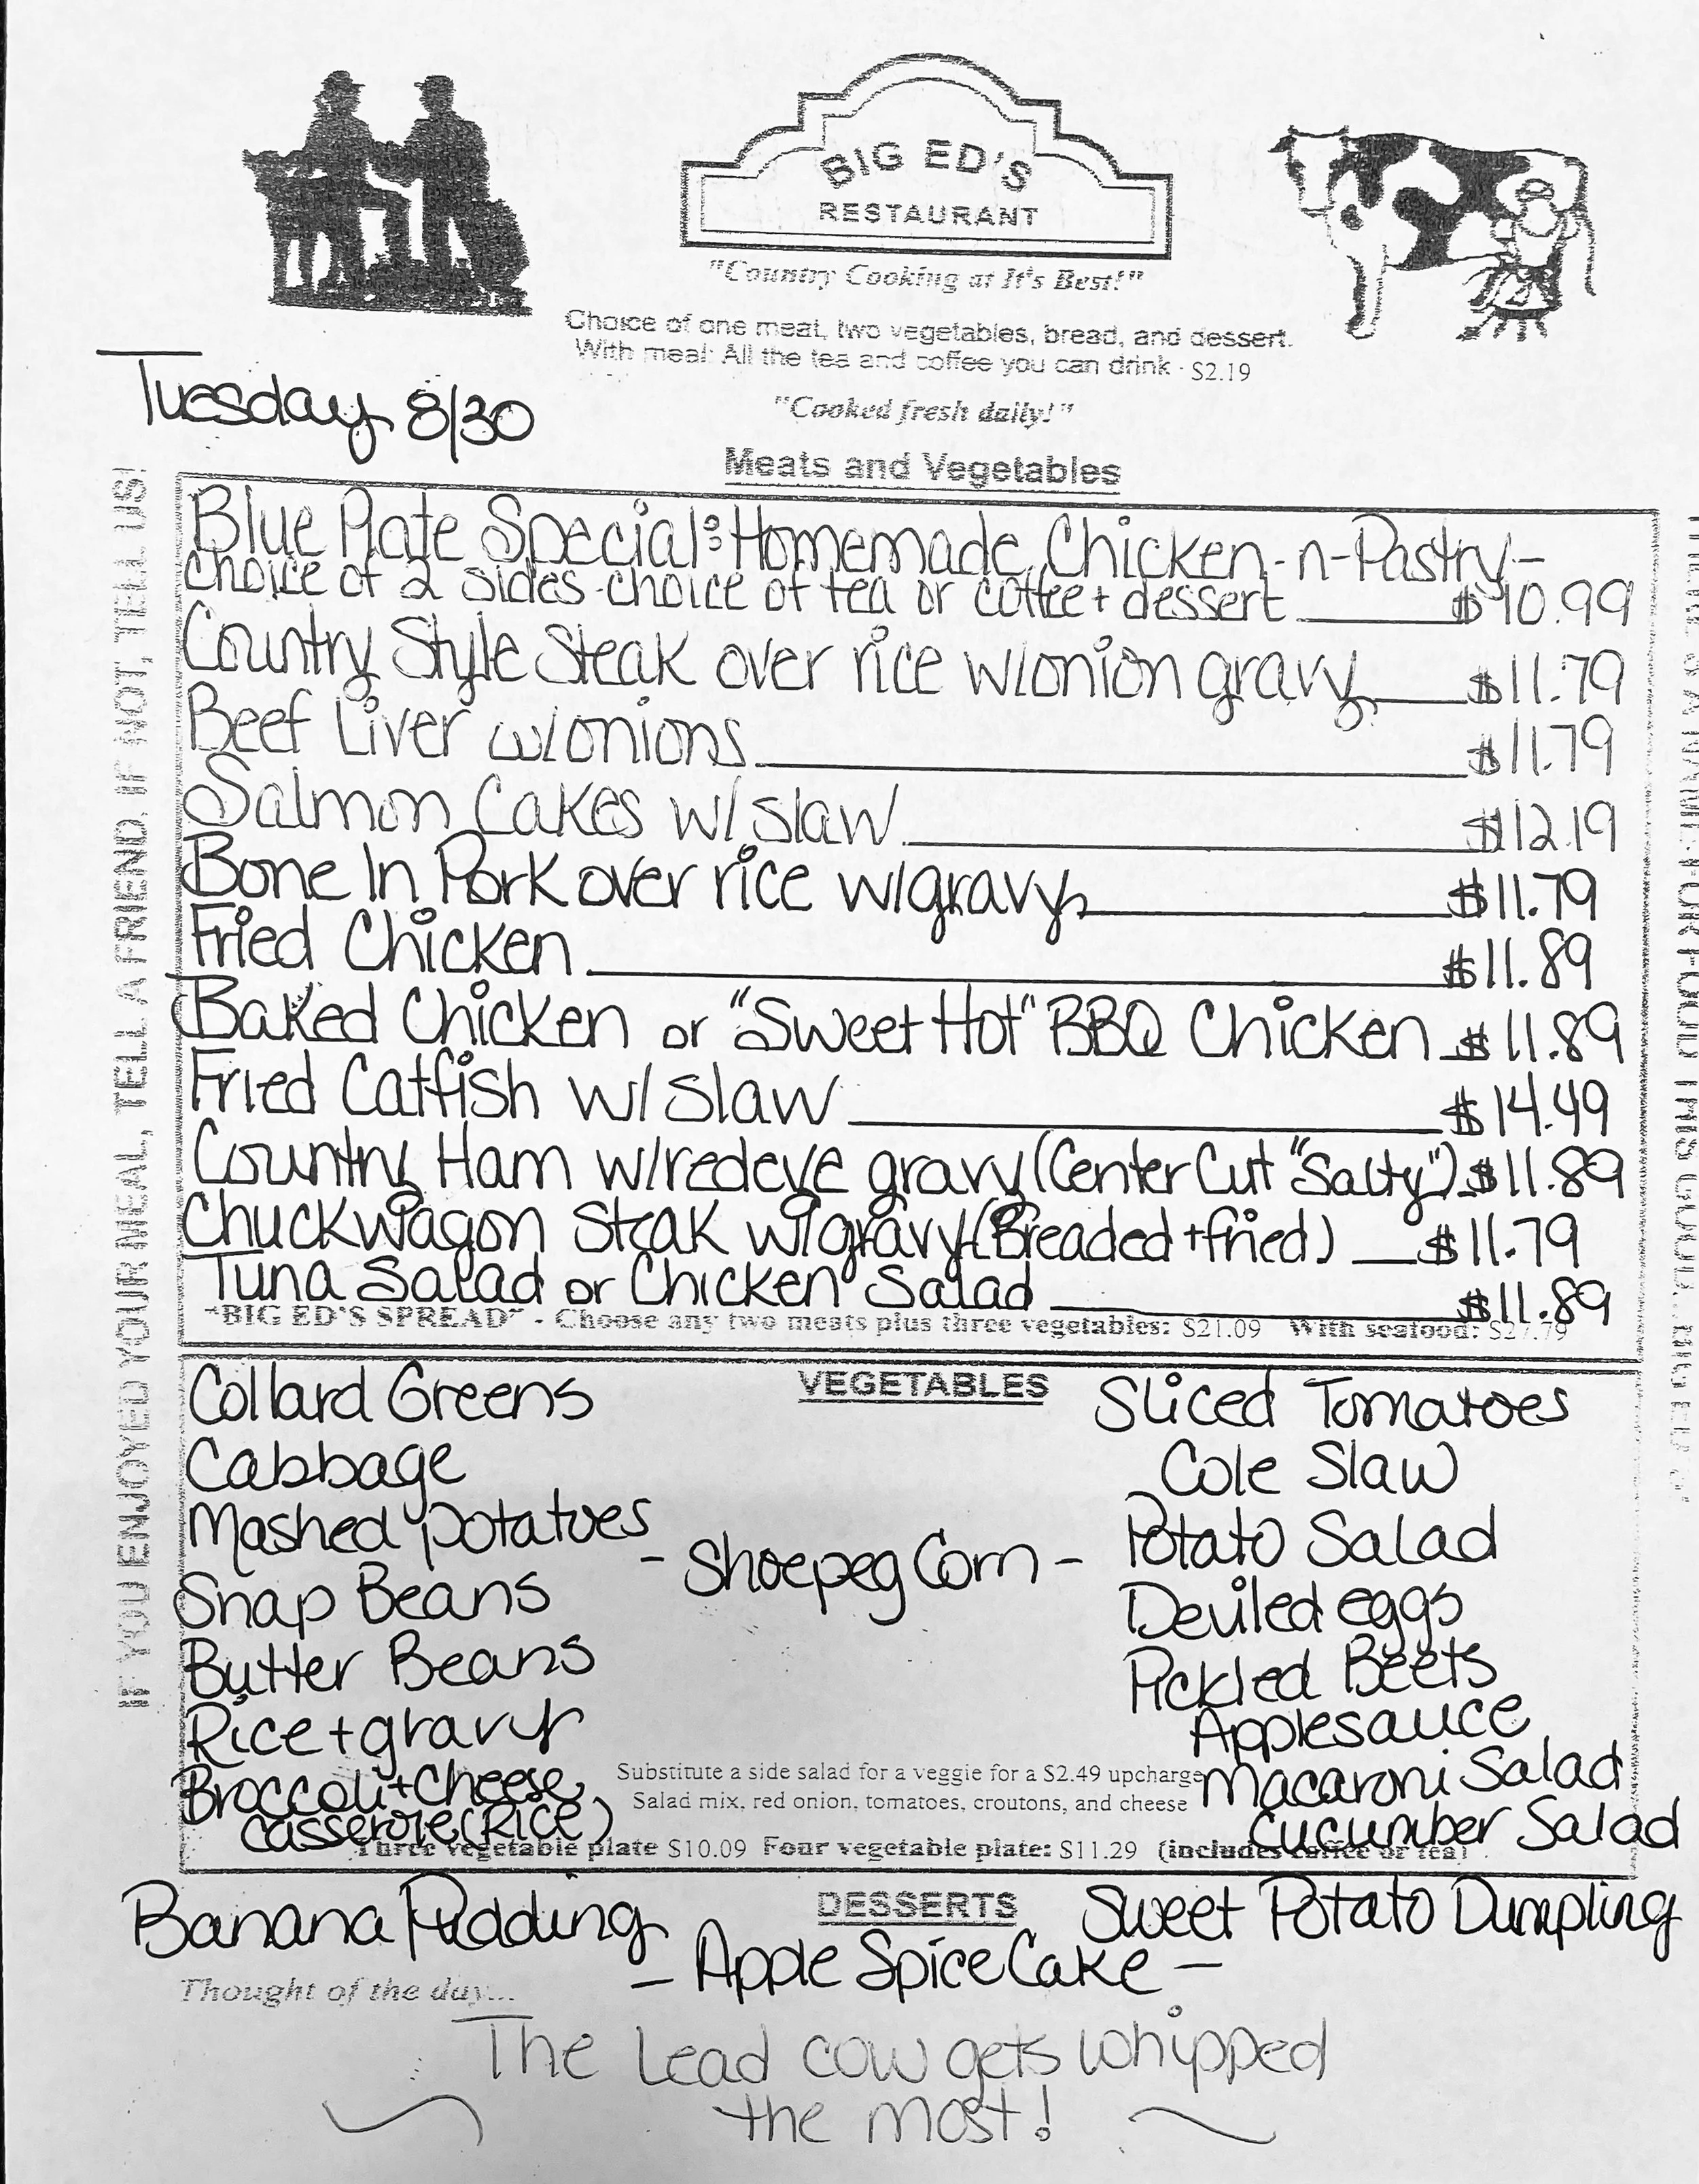 BIG ED'S
RESTAURANT
"Country Cooking at It's Best!"
Choice of one meat, two vegetables, bread, and dessert.
With meal: All the tea and coffee you can drink - $2.19
Tuesday 8/30
"Cooked fresh daily!"
Meats and Vegetables
IF YOU ENJOYED YOUR MEAL, TELL A FRIEND. IF NOT, TELL US!
Blue Plate Special: Homemade Chicken-n-Pastry-
choice of 2 sides-choice of tea or coffee + dessert $10.99
Country Style Steak over rice w/onion gravy $11.79
Beef Liver w/onions $11.79
Salmon Cakes w/ slaw $12.19
Bone In Pork over rice w/gravy $11.79
Fried Chicken $11.89
Baked Chicken or "Sweet Hot" BBQ Chicken $11.89
Fried Catfish w/ slaw $14.49
Country Ham w/redeye gravy (Center Cut "Salty") $11.89
Chuckwagon Steak w/gravy (Breaded + fried) $11.79
Tuna Salad or Chicken Salad $11.89
"BIG ED'S SPREAD" - Choose any two meats plus three vegetables: $21.09 With seafood: $27.79
VEGETABLES
Collard Greens
Cabbage
Mashed potatoes
Snap Beans
Butter Beans
Rice + gravy
Broccoli + Cheese
casserole (Rice)
- Shoepeg Corn -
Sliced Tomatoes
Cole Slaw
Potato Salad
Deviled eggs
Pickled Beets
Applesauce
Macaroni Salad
Cucumber Salad
Substitute a side salad for a veggie for a $2.49 upcharge
Salad mix, red onion, tomatoes, croutons, and cheese
Three vegetable plate $10.09 Four vegetable plate: $11.29 (includes coffee or tea)
DESSERTS
Banana Pudding
- Apple Spice Cake -
Sweet Potato Dumpling
Thought of the day...
The Lead cow gets whipped
the most!